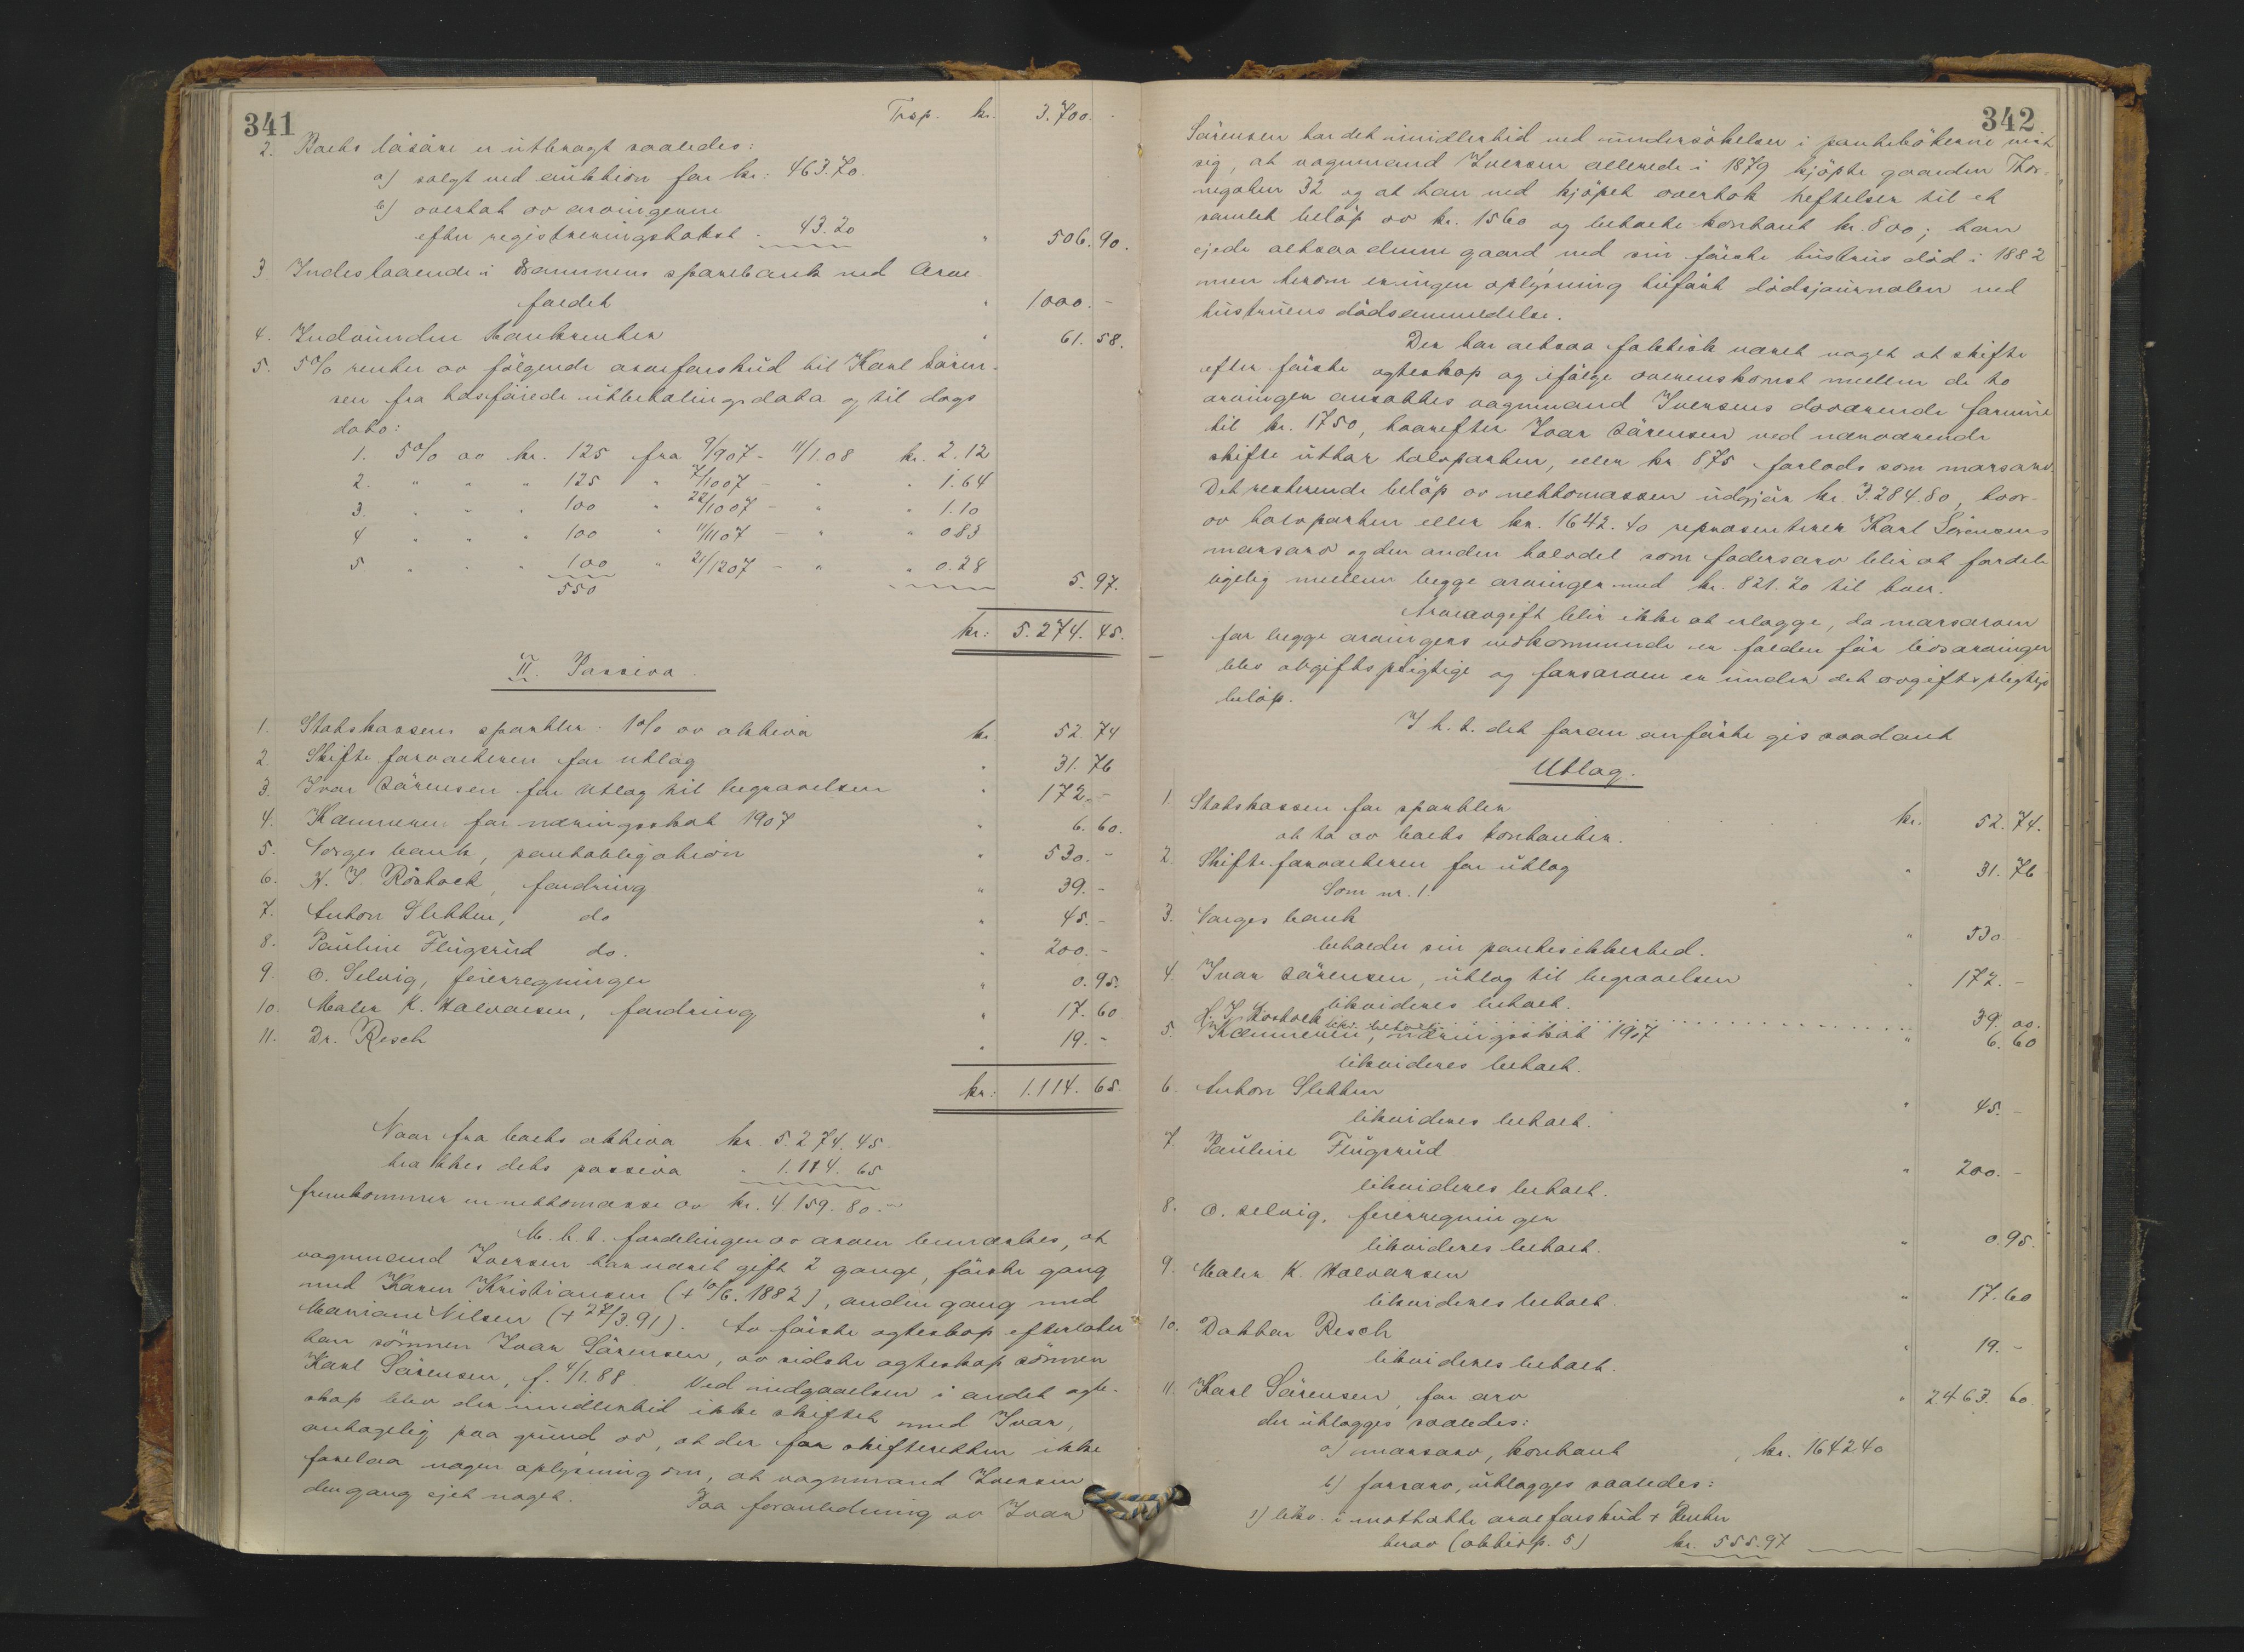 341
Trsp. kr. 3.700.-
2. Boets løsøre er utbragt saaledes:
a) solgt ved auktion for kr: 463.70.
b) overtat av arvingerne
efter registreringstakst - 43.20 " 506.90.
3. Indestaaende i Drammens sparebank ved Arve-
faldet " 1000.-
4. Indvundne bankrenter " 61.58.
5. 5% renter av følgende arveforskud til Karl Søren-
sen fra hosføiede utbetalingsdata og til dags
dato:
1. 5% av kr. 125 fra 9/907 - 11/1.08 kr. 2.12
2. " " " 125 " 7/1007 - " " 1.64
3. " " " 100 " 22/1007 - " " 1.10
4 " " " 100 " 11/1107 - " " 083
5 " " " 100 " 21/1207 - " " 0.28
550 5.97.
kr: 5.274.45.
II. Passiva.
1. Statskassens sportler: 1% av aktiva kr 52.74
2. Skifteforvalteren for utlæg " 31.76
3. Ivar Sørensen for utlæg til begravelsen " 172.-
4. Kæmneren for næringsskat 1907 " 6.60.
5. Norges bank, pantobligation " 530.-
6. H. J. Rosholt, fordring " 39.-
7. Anton Sletten, do " 45.-
8. Pauline Flugsrud do. " 200.-
9. O. Selvig, feierregninger " 0.95.
10. Maler K. Halvorsen, fordring " 17.60
11. Dr. Resch " 19.-
kr: 1.114.65.
Naar fra boets aktiva kr. 5.274.45
trækkes dets passiva " 1.114.65
fremkommer en nettomasse av kr. 4.159.80.-
M.h.t. fordelingen av arven bemærkes, at
vognmand Iversen har været gift 2 gange, første gang
med Karen Kristiansen (+ 10/6.1882), anden gang med
Mariane Nilsen (+ 27/3.91). Av første egteskap efterlater
han sønnen Ivar Sørensen, av sidste egteskap sønnen
Karl Sørensen, f. 4/1.88. Ved indgaaelsen i andet egte-
skap blev der imidlertid ikke skiftet med Ivar,
antagelig paa grund av, at der for skifteretten ikke
forelaa nogen oplysning om, at vognmand Iversen
dengang eiet noget. Paa foranledning av Ivar
342
Sørensen har det imidlertid ved undersøkelser i pantebøkerne vist
sig, at vognmand Iversen allerede i 1879 kjøpte gaarden Thor-
negaten 32 og at han ved kjøpet overtok heftelser til et
samlet beløp av kr. 1560 og betalte kontant kr. 800; han
eiede altsaa denne gaard ved sin første hustrus død i 1882
men herom er ingen oplysning tilført dødsjournalen ved
hustruens dødsanmeldelse.
Der har altsaa faktisk været noget at skifte
efter første egteskap og ifølge overenskomst mellem de to
arvinger ansættes vognmand Iversens daværende formue
til kr. 1750, hvorefter Ivar Sørensen ved nærværende
skifte uttar halvparten, eller kr 875 forlods som morsarv.
Det resterende beløp av nettomassen udgjør kr. 3.284.80, hvor-
av halvparten eller kr. 1642.40 repræsenterer Karl Sørensens
morsarv og den anden halvdel som fadersarv blir at fordele
ligelig mellem begge arvinger med kr. 821.20 til hver.
Arveavgift blir ikke at erlægge, da morsarven
for begge arvingers vedkommende er falden før livsarvinger
blev avgiftspligtige og farsarven er under det avgiftspligtige
beløp.
I h.t. det foran anførte gis saadant
Utlæg.
1. Statskassen for sportler kr. 52.74.
at ta av boets kontanter.
2. Skifteforvalteren for utlæg " 31.76
Som nr. 1.
3. Norges bank " 530
beholder sin pantesikkerhed.
4. Ivar Sørensen, utlæg til begravelsen " 172.-
likvideres betalt.
H. J. Rosholt likv. betalt 39.00.
5. Kæmneren, næringsskat 1907 " 6.60
likvideres betalt.
6. Anton Sletten " 45.-
likvideres betalt.
7. Pauline Flugsrud " 200.-
likvideres betalt.
8. O. Selvig, feierregninger " 0.95.
likvideres betalt.
9. Maler K. Halvorsen " 17.60
likvideres betalt.
10. Doktor Resch " 19.-
likvideres betalt.
11. Karl Sørensen, for arv " 2463.60.
der utlægges saaledes:
a) morsarv, kontant, kr. 1642.40
b) farsarv, utlægges saaledes:
1) likv. i mottatte arveforskud + Renter
herav (aktivp. 5) kr. 555.97